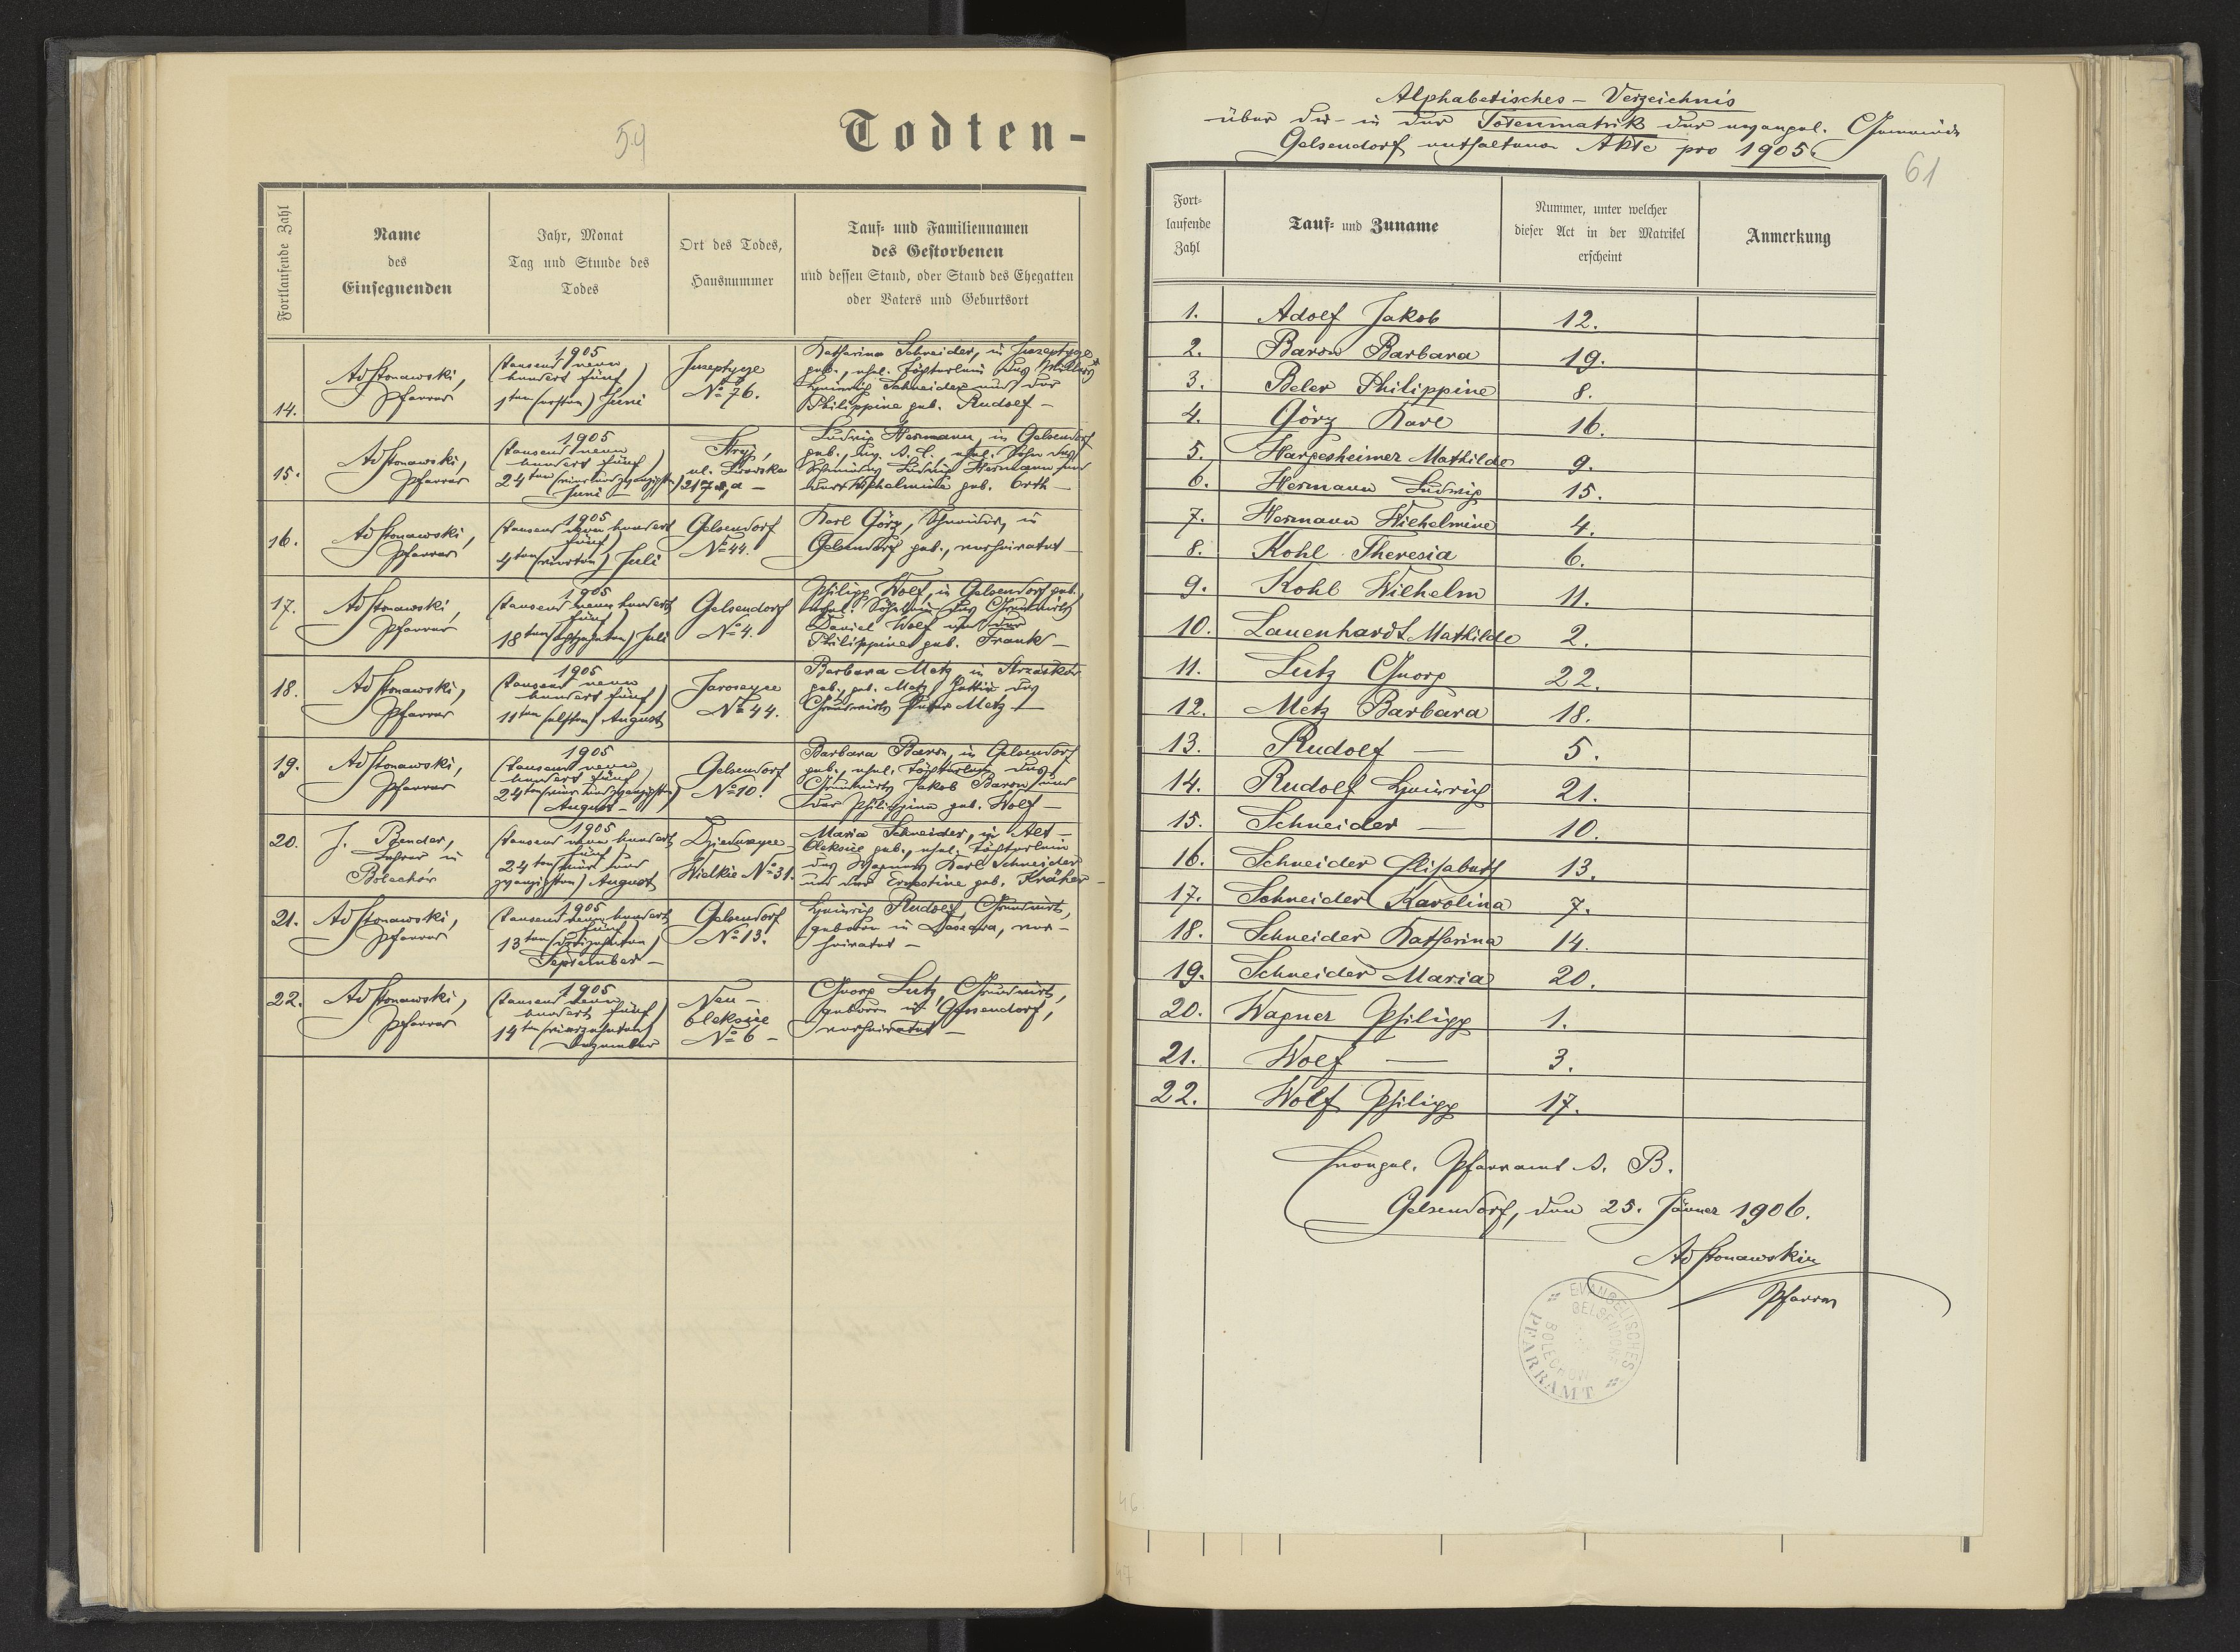 59
Todten-
Fortlaufende Zahl
Name
des
Einsegnenden
Jahr, Monat
Tag und Stunde des
Todes
Ort des Todes,
Hausnummer
Tauf- und Familiennamen
des Gestorbenen
und dessen Stand, oder Stand des Ehegatten
oder Vaters und Geburtsort
14.
Ad Stonawski,
Pfarrer
1905
(tausend neun
hundert fünf)
1ten (ersten) Juni
Juseptycze
No 76.
Katharina Schneider, in Juseptycze
geb., ehel. Töchterlein des
Heinrich Schneider und der
Philippine geb. Rudolf –
15.
Ad Stonawski,
Pfarrer
1905
(tausend neun
hundert fünf)
24ten (vier und zwanzigsten)
Juni –
Stryj,
ul. Lwowska
217
Ludwig Hermann, in Gelsendorf
geb., ev. A. C., ehel. Sohn des
Schmiedes Ludwig Hermann und
der Wilhelmine geb. Orth –
16.
Ad Stonawski,
Pfarrer
1905
(tausend neun hundert
fünf)
4ten (vierten) Juli
Gelsendorf
No 44.
Karl Görz, Schneider, in
Gelsendorf geb., verheiratet –
17.
Ad Stonawski,
Pfarrer
1905
(tausend neun hundert
fünf)
18ten (achtzehnten) Juli
Gelsendorf
No 4.
Philipp Wolf, in Gelsendorf geb.
ehel. Söhnlein des Grundwirts
Daniel Wolf und der
Philippine geb. Frank –
18.
Ad Stonawski,
Pfarrer
1905
(tausend neun
hundert fünf)
11ten (elften) August
Jaroszyce
No 44.
Barbara Metz in
geb., geb. Metz, Gattin des
Grundwirts Peter Metz –
19.
Ad Stonawski,
Pfarrer
1905
(tausend neun
hundert fünf)
24ten (vier und zwanzigsten)
August –
Gelsendorf
No 10.
Barbara Baron, in Gelsendorf
geb., ehel. Töchterlein des
Grundwirts Jakob Baron und
der Philippine geb. Wolf –
20.
J. Bender,
Lehrer in
Bolechów
1905
(tausend neun hundert
fünf)
24ten (vier und
zwanzigsten) August
Dzieduszyce
Wielkie No 31.
Maria Schneider, in Alt-
Oleksice geb., ehel. Töchterlein
des Wagners Karl Schneider
und der Ernestine geb. Kräher –
21.
Ad Stonawski,
Pfarrer
1905
(tausend neun hundert
fünf)
13ten (dreizehnten)
September –
Gelsendorf
No 13.
Heinrich Rudolf, Grundwirt,
geboren in, ver-
heiratet –
22.
Ad Stonawski,
Pfarrer
1905
(tausend neun
hundert fünf)
14ten (vierzehnten)
Dezember
Neu –
Oleksice
No 6 –
Georg Lutz, Grundwirt,
geboren in Gelsendorf,
verheiratet –
Alphabetisches – Verzeichnis
über die in der Totenmatrik der evangel. Gemeinde
Gelsendorf enthaltenen Akte pro 1905.
61
Fort-
laufende
Zahl
Tauf- und Zuname
Nummer, unter welcher
dieser Act in der Matrikel
erscheint
Anmerkung
1. Adolf Jakob 12.
2. Baron Barbara 19.
3. Beler Philippine 8.
4. Görz Karl 16.
5. Hargesheimer Mathilde 9.
6. Hermann Ludwig 15.
7. Hermann Wilhelmine 4.
8. Kohl Theresia 6.
9. Kohl Wilhelm 11.
10. Lauenhardt Mathilde 2.
11. Lutz Georg 22.
12. Metz Barbara 18.
13. Rudolf — 5.
14. Rudolf Heinrich 21.
15. Schneider — 10.
16. Schneider Elisabeth 13.
17. Schneider Karolina 7.
18. Schneider Katharina 14.
19. Schneider Maria 20.
20. Wagner Philipp 1.
21. Wolf — 3.
22. Wolf Philipp 17.
Evangel. Pfarramt A. B.
Gelsendorf, den 25. Jänner 1906.
Ad Stonawski
Pfarrer
EVANGELISCHES PFARRAMT
GELSENDORF
BOLECHOW
46
47